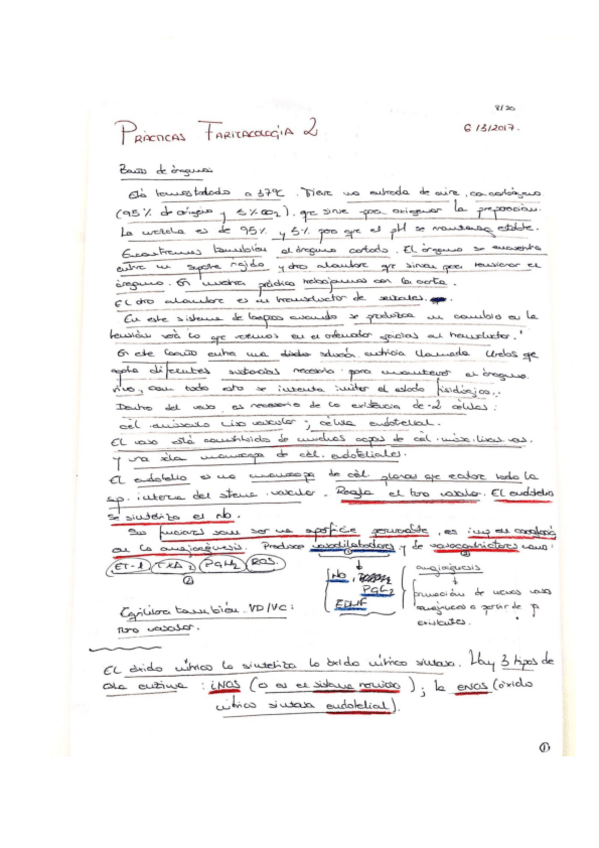 8/20
PRÁCTICAS FARMACOLOGÍA 2
6/3/2017.
Baño de órganos
Está termostatado a 37ºC. Tiene una entrada de aire, carbógeno
(95% de oxígeno y 5% CO2), que sirve para oxigenar la preparación.
La mezcla es de 95% y 5% para que el pH se mantenga estable.
Encontramos también el órgano cortado. El órgano se encuentra
entre un soporte rígido y otro alambre que sirven para tensionar el
órgano. En nuestra práctica trabajamos con la aorta.
El otro alambre es un transductor de señales.
En este sistema de baños cuando se produzca un cambio en la
tensión será lo que veremos en el ordenador gracias al transductor.
En este baño entra una disolución nutricia llamada Krebs que
aporta diferentes sustancias necesarias para mantener el órgano
vivo, con todo esto se intenta imitar el estado fisiológico.
Dentro del vaso, es necesario de la existencia de 2 células:
cél. músculo liso vascular; célula endotelial.
El vaso está constituido de muchas capas de cél. músc. lisas vas.
y una sola monocapa de cél. endoteliales.
El endotelio es una monocapa de cél. planas que recubre toda la
sup. interna del sistema vascular. Regla el tono vascular. El endotelio
se sintetiza el NO.
Sus funciones son: ser una superficie permeable, es imp en
en la angiogénesis. Produce vasodilatadores y de vasoconstrictores como:
① ②
ET-1 TXA2 PGH2 ROS.
②
NO, PGI2
EDHF
angiogénesis
formación de nuevos vasos
sanguíneos a partir de
existentes.
Equilibra también VD/VC:
tono vascular.
El óxido nítrico lo sintetiza la óxido nítrico sintasa. Hay 3 tipos de
esta enzima: iNOS (o en el sistema nervioso); la ENOS (óxido
nítrico sintasa endotelial).
①